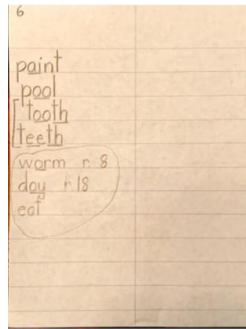 6
paint
pool
tooth
teeth
worm r 8
day r 18
eat